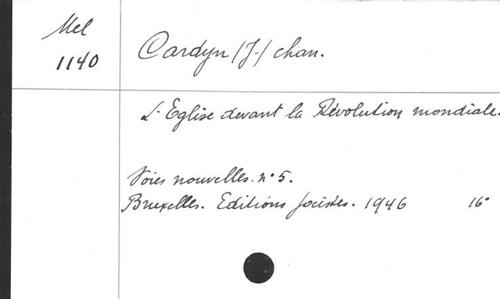 Mel
1140
Cardyn /J./ chan.
L'Eglise devant la Révolution mondiale.
Voies nouvelles. n° 5.
Bruxelles. Editions jocistes. 1946 16°